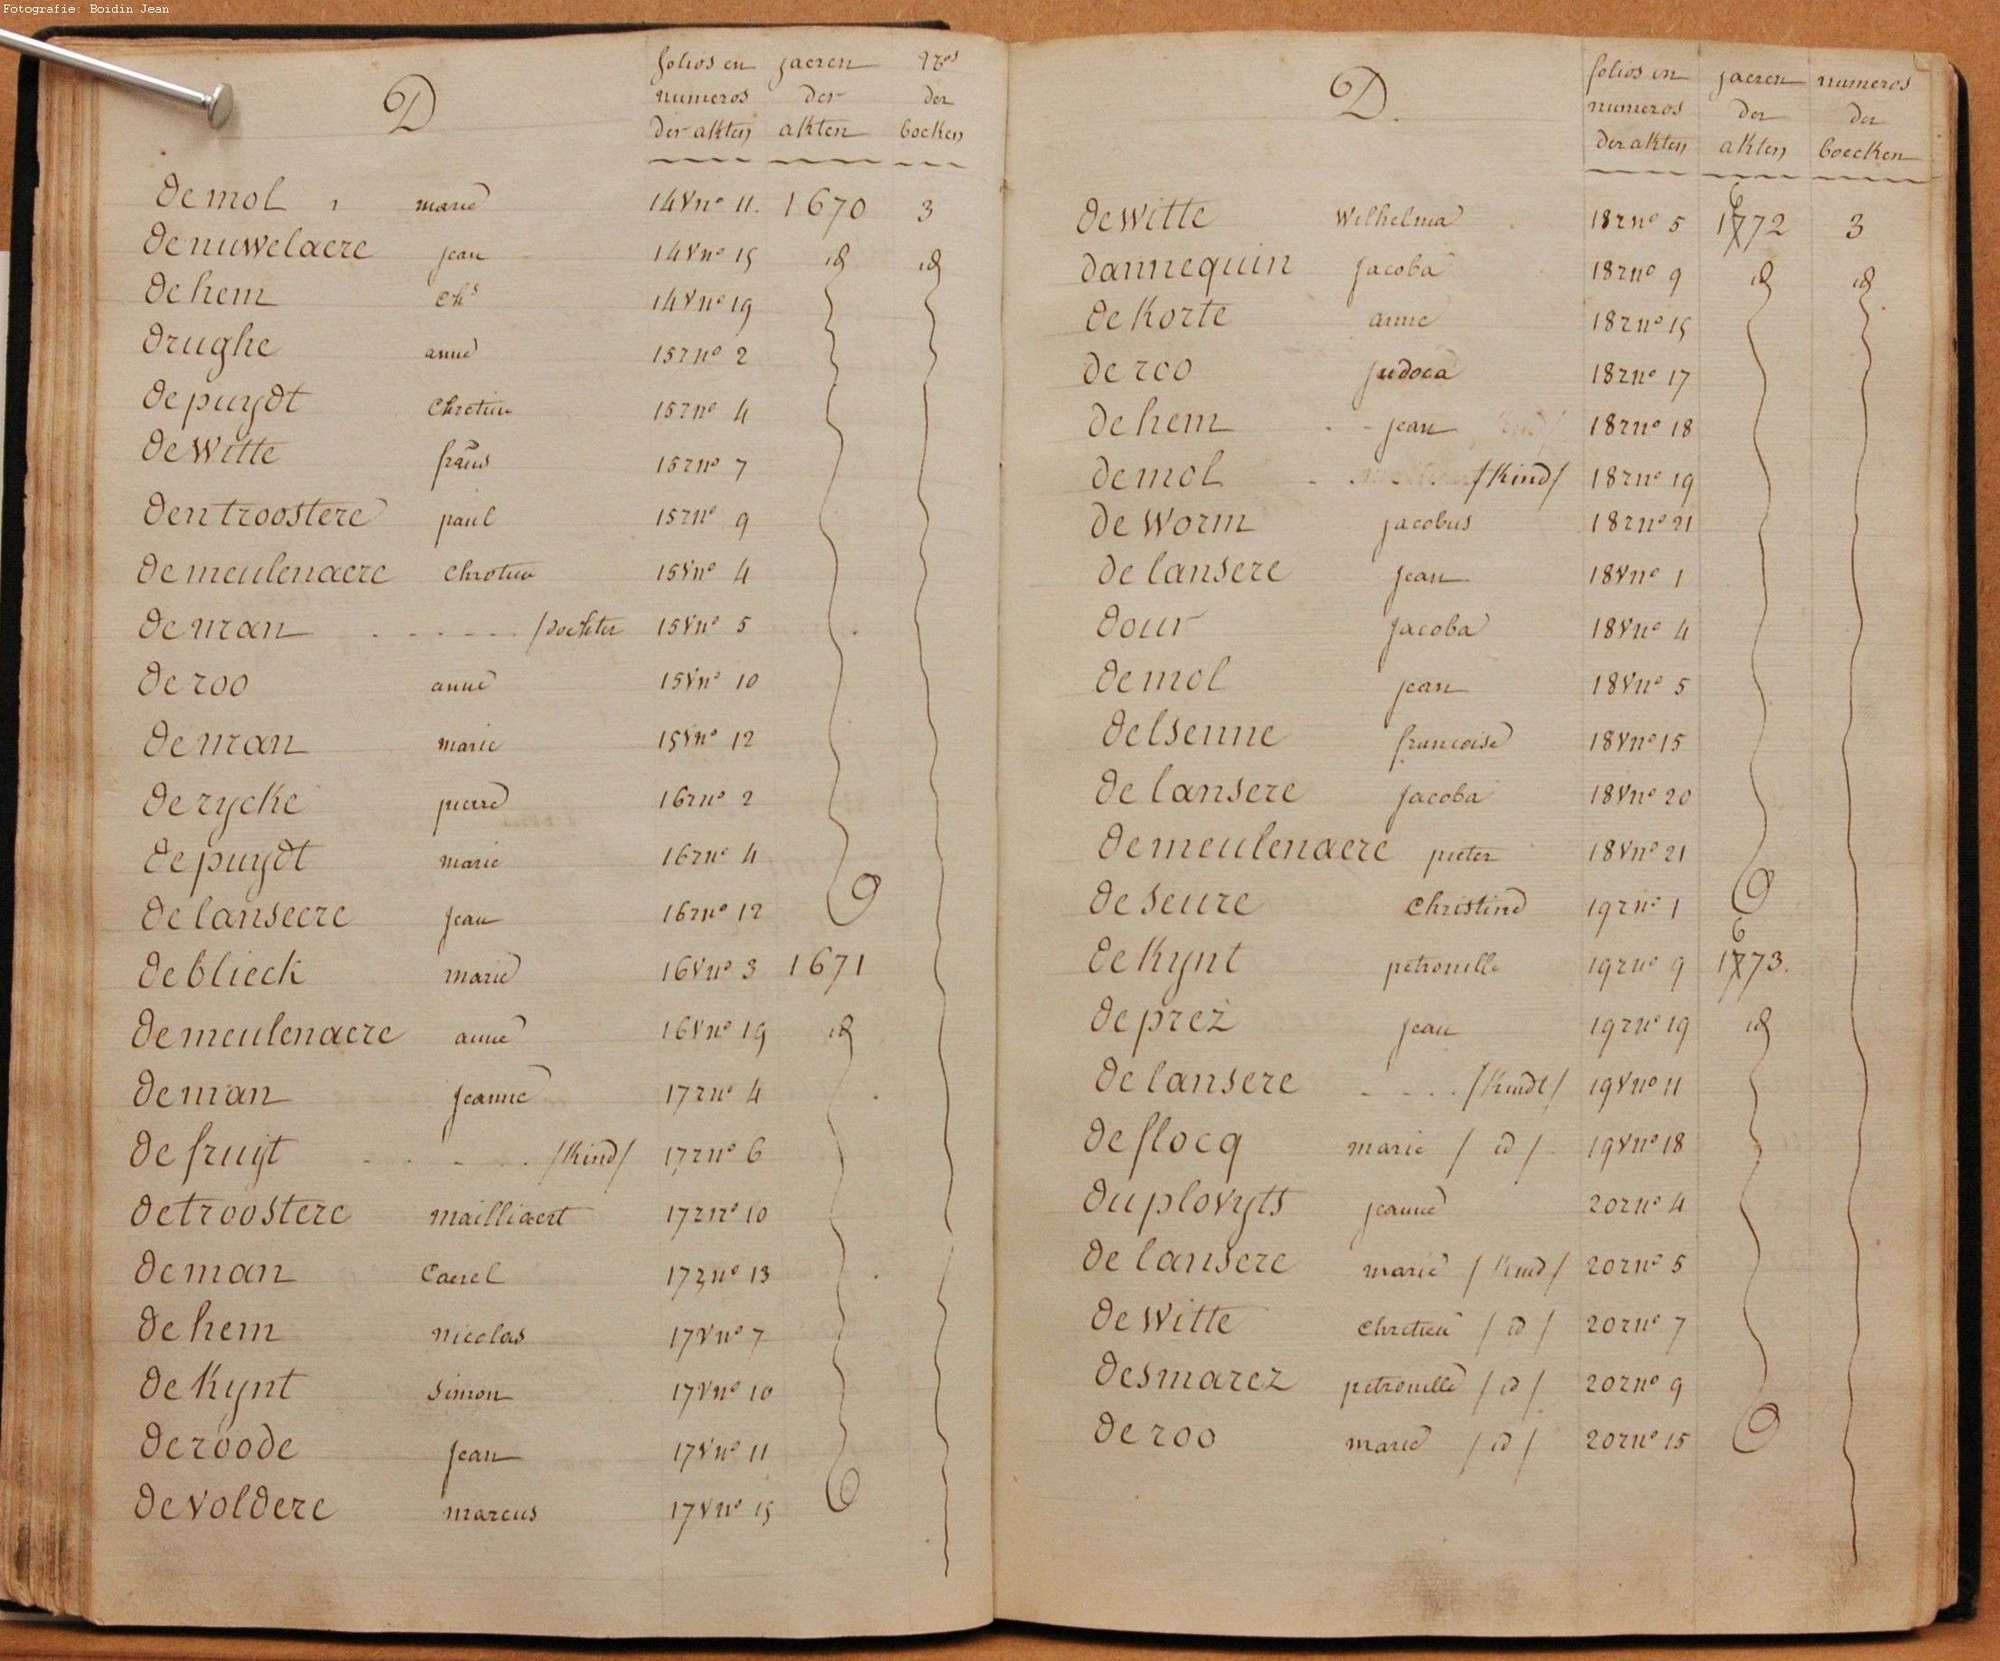 Fotografie: Boidin Jean
D folios en numeros der akten jaeren der akten nros der boeken
de mol marie 14v no 11. 1670 3
de nuwelaere jean 14v no 15 id id
de hem chs 14v no 19
drughe anne 15r no 2
de puydt chretien 15r no 4
de witte frans 15r no 7
den troostere paul 15r no 9
de meulenaere chretien 15v no 4
de man - - - - - /dochter 15v no 5
de roo anne 15v no 10
de man marie 15v no 12
de rycke pierre 16r no 2
de puydt marie 16r no 4
de lanseere jean 16r no 12
de blieck marie 16v no 3 1671
de meulenaere anne 16v no 19 id
de man jeanne 17r no 4
de fruyt - - - - /kind/ 17r no 6
de troostere mailliaert 17r no 10
de man Caerel 17r no 13
de hem nicolas 17v no 7
de kynt simon 17v no 10
de roode jean 17v no 11
de voldere marcus 17v no 15
D. folios en numeros der akten jaeren der akten numeros der boecken
de witte wilhelma 18r no 5 1672 3
dannequin jacoba 18r no 9 id id
de korte anne 18r no 15
de roo judoca 18r no 17
de hem - - jean 18r no 18
de mol - /kind/ 18r no 19
de worm jacobus 18r no 21
de lansere jean 18v no 1
dour jacoba 18v no 4
de mol jean 18v no 5
delsenne francoise 18v no 15
de lansere jacoba 18v no 20
de meulenaere pieter 18v no 21
de seure christine 19r no 1
de kynt petronille 19r no 9 1673.
de prez jean 19r no 19 id
de lansere - - - - /kindt/ 19v no 11
de flocq marie / id / 19v no 18
du plovyts jeanne 20r no 4
de lansere marie / kind / 20r no 5
de witte chretien / id / 20r no 7
desmarez petronille / id / 20r no 9
de roo marie / id / 20r no 15